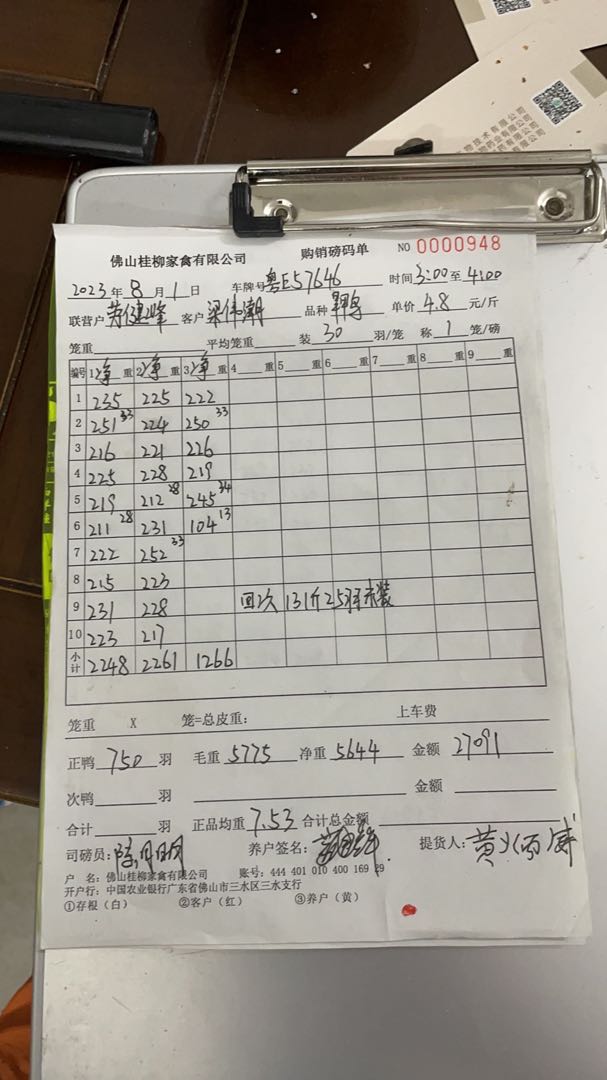 物技术有限公司
药业有限公司
有限公司
佛山桂柳家禽有限公司 购销磅码单 NO 0000948
2023年 8 月 1 日 车牌号 粤E57646 时间 3:00 至 4:00
联营户 健峰 客户 梁伟潮 品种 单价 4.8 元/斤
笼重 平均笼重 装 30 羽/笼 称 1 笼/磅
编号 1净重 2净重 3净重 4 重 5 重 6 重 7 重 8 重 9 重
1 235 225 222
2 251 33 224 250 33
3 216 221 226
4 225 228 219
5 219 212 28 245 34
6 211 28 231 104 13
7 222 252 33
8 215 223
9 231 228 回次 131斤 25羽未装
10 223 217
小计 2248 2261 1266
笼重 X 笼=总皮重: 上车费
正鸭 750 羽 毛重 5775 净重 5644 金额 27091
次鸭 羽 金额
合计 羽 正品均重 7.53 合计总金额
司磅员: 养户签名: 提货人: 黄
户 名: 佛山桂柳家禽有限公司 账号: 444 401 010 400 169 29
开户行: 中国农业银行广东省佛山市三水区三水支行
①存根(白) ②客户(红) ③养户(黄)